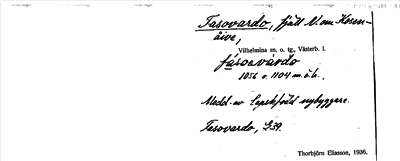 Tasovardo, fjäll N om Keren-
åive,
Vilhelmina sn. o. tg., Västerb. l.
fásoevárdo
1056 o. 1104 m.ö.h.
Medd. av lapskfödd nybyggare.
Tasovardo, G39.
Thorbjörn Eliasson, 1936.